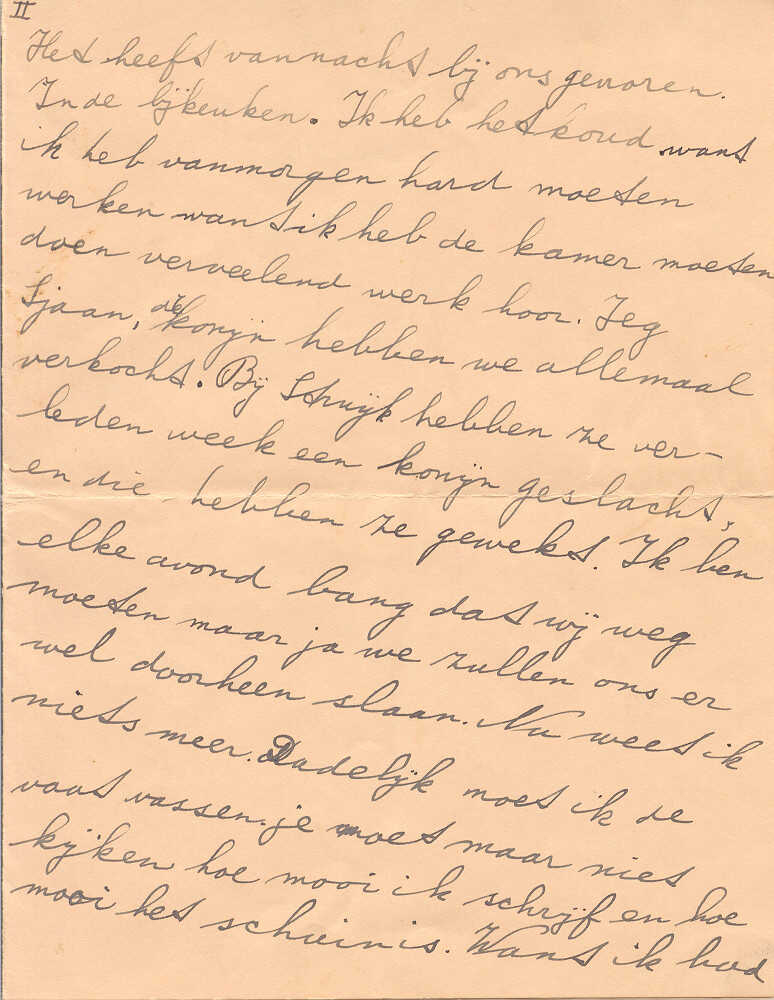 II
Het heeft vannacht bij ons gevroren.
In de bijkeuken. Ik heb het koud want
ik heb vanmorgen hard moeten
werken want ik heb de kamer moeten
doen vervelend werk hoor. Zeg
Sjaan, de konijn hebben we allemaal
verkocht. Bij Schuijk hebben ze ver-
leden week een konijn geslacht,
en die hebben ze gewekt. Ik ben
elke avond bang dat wij weg
moeten maar ja we zullen ons er
wel doorheen slaan. Nu weet ik
niets meer. Dadelijk moet ik de
vaat wassen. je moet maar niet
kijken hoe mooi ik schrijf en hoe
mooi het schuin is. Want ik had